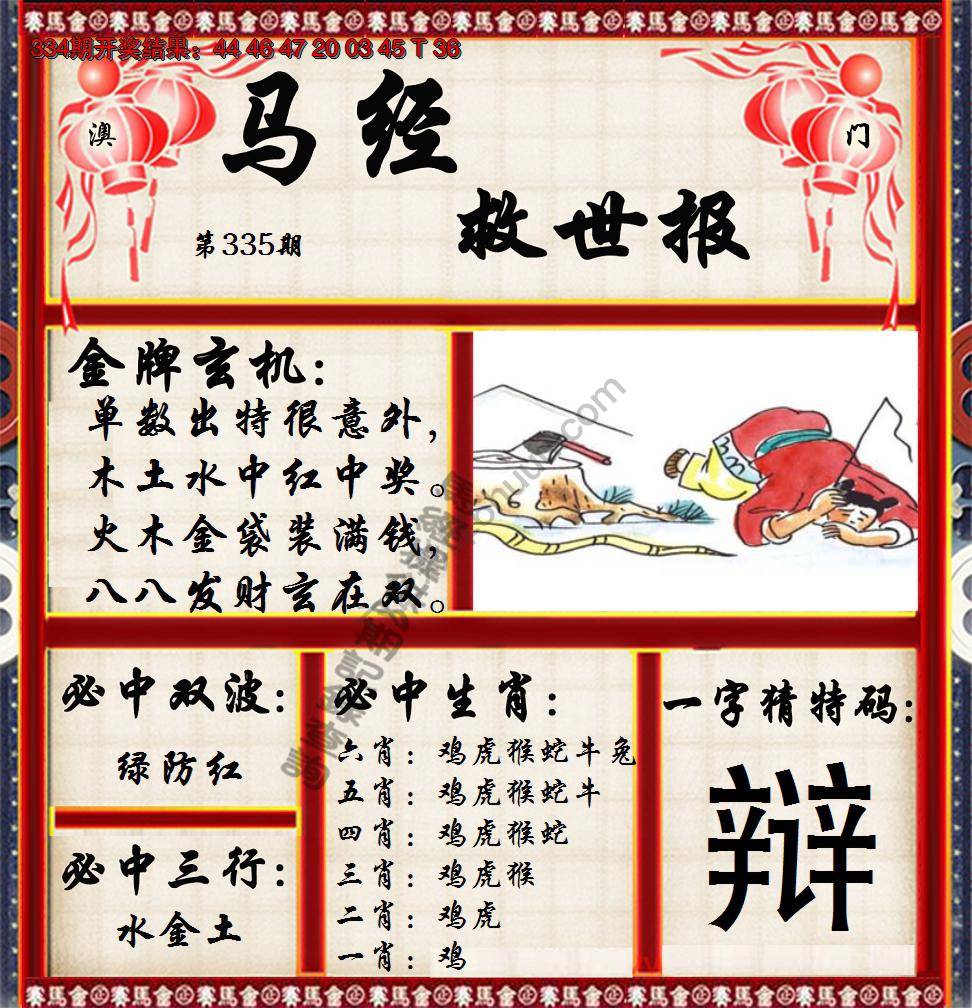 334期开奖结果：44 46 47 20 03 45 T 36
澳
门
马经
救世报
第335期
金牌玄机：
单数出特很意外，
木土水中红中奖。
火木金袋装满钱，
八八发财玄在双。
必中双波：
绿防红
必中三行：
水金土
必中生肖：
六肖：鸡虎猴蛇牛兔
五肖：鸡虎猴蛇牛
四肖：鸡虎猴蛇
三肖：鸡虎猴
二肖：鸡虎
一肖：鸡
一字猜特码：
辩